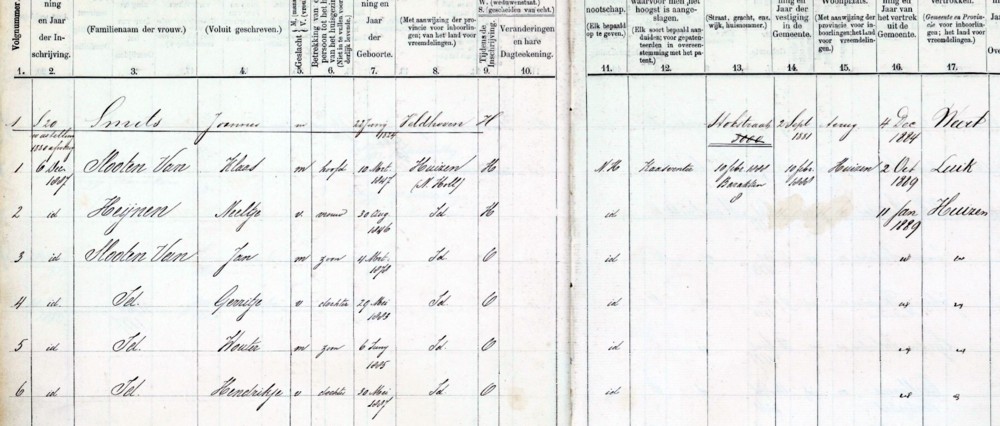 Volgnummer.
ning
en Jaar
der In-
schrijving.
(Familienaam der vrouw.)
(Voluit geschreven.)
Geslacht
Betrekking van
persoon tot het
van het huisgezin
ning en
Jaar
der
Geboorte.
(Met aanwijzing der pro-
vincie voor inboorlin-
gen; van het land voor
vreemdelingen.)
W. (weduwenstaat.)
S. (gescheiden van echt.)
Tijdens de
Inschrijving.
Veranderingen
en hare
Dagteekening.
nootschap.
(Elk bepaald
op te geven.)
waarvoor men het
hoogst is aange-
slagen.
(Elk soort bepaald aan-
duiden; voor gepaten-
teerden in overeen-
stemming met het pa-
tent.)
(Straat, gracht, enz.
wijk, huisnommer.)
ning en
Jaar der
vestiging
in de
Gemeente.
Woonplaats.
(Met aanwijzing der
provincie voor in-
boorlingen; het land
voor vreemdelingen.)
ning en
Jaar
van het vertrek
uit de
Gemeente.
Vertrokken.
(Gemeente en Provin-
cie voor inboorlin-
gen; het land voor
vreemdelingen.)
1. 2. 3. 4. 5. 6. 7. 8. 9. 10. 11. 12. 13. 14. 15. 16. 17.
1 Smels Joannes m 22 Juny Veldhoven H 2 Sept 1881 terug 4 Dec 1884 Weert
1 6 Dec. 1887 Slooten Van Klaas m hoofd 10 Mrt. 1847 Huizen (N. Holl.) H N H Kaasventer Barakken Huizen 2 Oct 1889 Luik
2 id Heijnen Meeltje v vrouw 30 Aug 1846 Id H id 11 Jan 1889 Huizen
3 id Slooten Van Jan m zoon 4 Mrt. 1878 Id O id " "
4 id Id. Gerritje v dochter 29 Mei 1883 Id O id " "
5 id Id. Wouter m zoon 6 Juny 1885 Id O id " "
6 id Id. Hendrikje v dochter 30 Mei 1887 Id O id " "